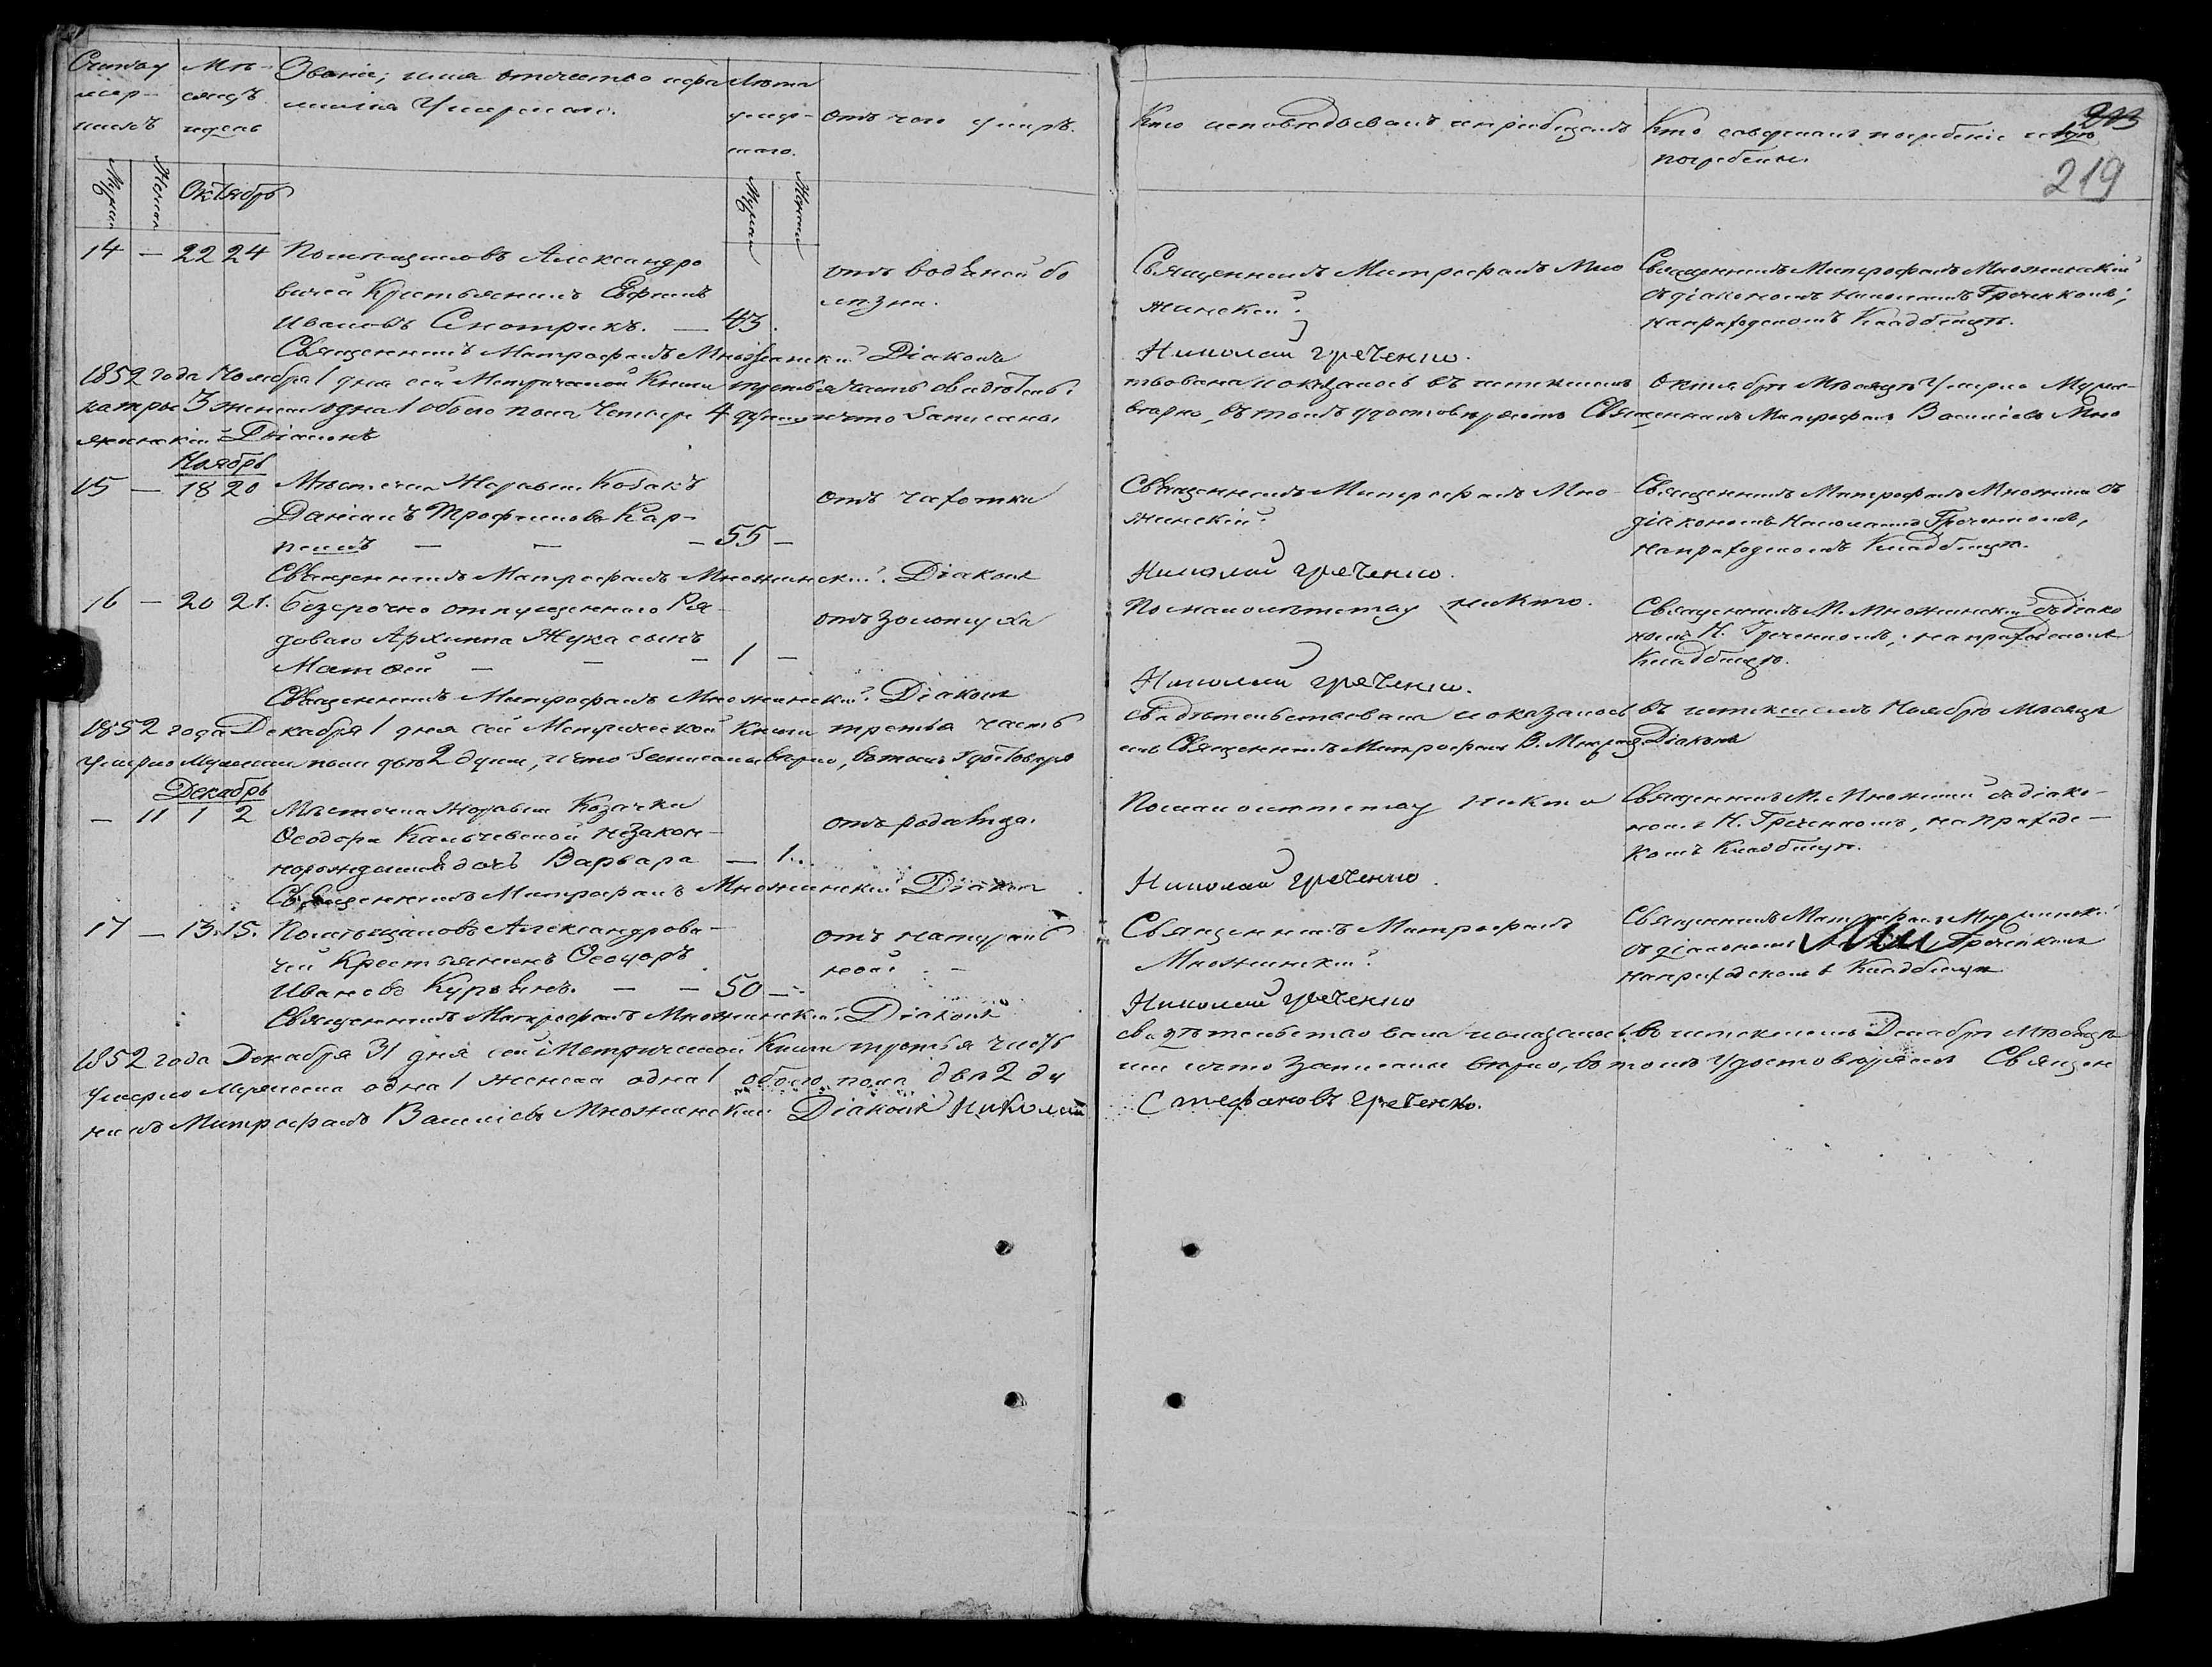 Счетъ умер-
шихъ
Мѣ-
сяцъ
и день
Званіе, имя отчество и фа
милія Умершаго.
Лѣта
умер-
шаго.
Отъ чего умеръ.
Кто исповѣдывалъ и пріобщалъ
Кто совершалъ погребеніе и гдѣ
погребены.
213
219
Мужеск
Женск
Октябрь
Мужеск
Женск
14 — 22 24
Помѣщиковъ Александро
вичей Крестьянинъ Ефимъ
Ивановъ Смотрикъ. — 43.
отъ водяной бо
лѣзни.
Священникъ Митрофанъ Мно
жинскій
Священникъ Митрофанъ Множинскій
съ діакономъ Николаемъ Греченкомъ;
на приходскомъ Кладбищѣ.
Священникъ Митрофанъ Множинскій Діаконъ
Николай Греченко.
1852 года Ноября 1 дня сей Метрической Книги третья часть свидѣтель-
ствована и оказалось въ истекшемъ Октябрѣ Мѣсяцѣ Умерло Муже-
3 женска одна 1 обоего пола Четыре 4 души и что записаны
вѣрно, въ томъ удостовѣряетъ Священникъ Митрофанъ Васильевъ Мно
жинскій Діаконъ
Ноябрь
15 — 18 20
Мѣстечка Журавки Козакъ
Даніилъ Трофимовъ Кар-
— — — 55 —
отъ чахотки
Священникъ Митрофанъ Мно-
жинскій
Священникъ Митрофанъ Множин съ
діакономъ Николаемъ Греченкомъ,
на приходскомъ Кладбищѣ.
Священникъ Митрофанъ Множинскій. Діаконъ
Николай Греченко.
16 — 20 21.
Безсрочно отпущеннаго Ря-
доваго Архиппа Жука сынъ
Матѳей — — — 1 —
отъ золотухи
По малолѣтству никто.
Священникъ М. Множинскій съ діако
номъ Н. Греченкомъ, на приходскомъ
Кладбищѣ.
Священникъ Митрофанъ Множинскій. Діаконъ
Николай Греченко.
1852 года Декабря 1 дня сей Метрической Книги третья часть
свидѣтельствована и оказалось въ истекшемъ Ноябрѣ Мѣсяцѣ
умерло Мужеска пола двѣ 2 души, и что записаны вѣрно, въ томъ удостовѣря
емъ Священникъ Митрофанъ В. Діаконъ
Декабрь
— 11 1 2
Мѣстечка Журавки Козачки
Ѳеодоры Кальчевской незакон-
норожденная дочь Варвара — 1.
отъ родимца.
По малолѣтству никто
Священникъ М. Множинскій съ діако-
номъ Н. Греченкомъ, на приходс-
комъ Кладбищѣ.
Священникъ Митрофанъ Множинскій Діаконъ
Николай Греченко.
17 — 13. 15.
Помѣщиковъ Александрови-
чей Крестьянинъ Ѳеодоръ
Ивановъ — — 50 —
отъ натураль
ной. —
Священникъ Митрофанъ
Множинскій
Священникъ Митрофанъ Множинскій
съ діакономъ Греченкомъ
на приходскомъ Кладбищѣ
Священникъ Митрофанъ Множинскій. Діаконъ
Николай Греченко
1852 года Декабря 31 дня сей Метрической Книги третья часть
свидѣтельствована и оказалось въ истекшемъ Декабрѣ Мѣсяцѣ
умерло Мужеска одна 1 женска одна 1 обоего пола двѣ 2 ду
ши и что записаны вѣрно, въ томъ удостовѣряемъ Священ
никъ Митрофанъ Васильевъ Множинскій Діаконъ Николай
Стефановъ Греченко.